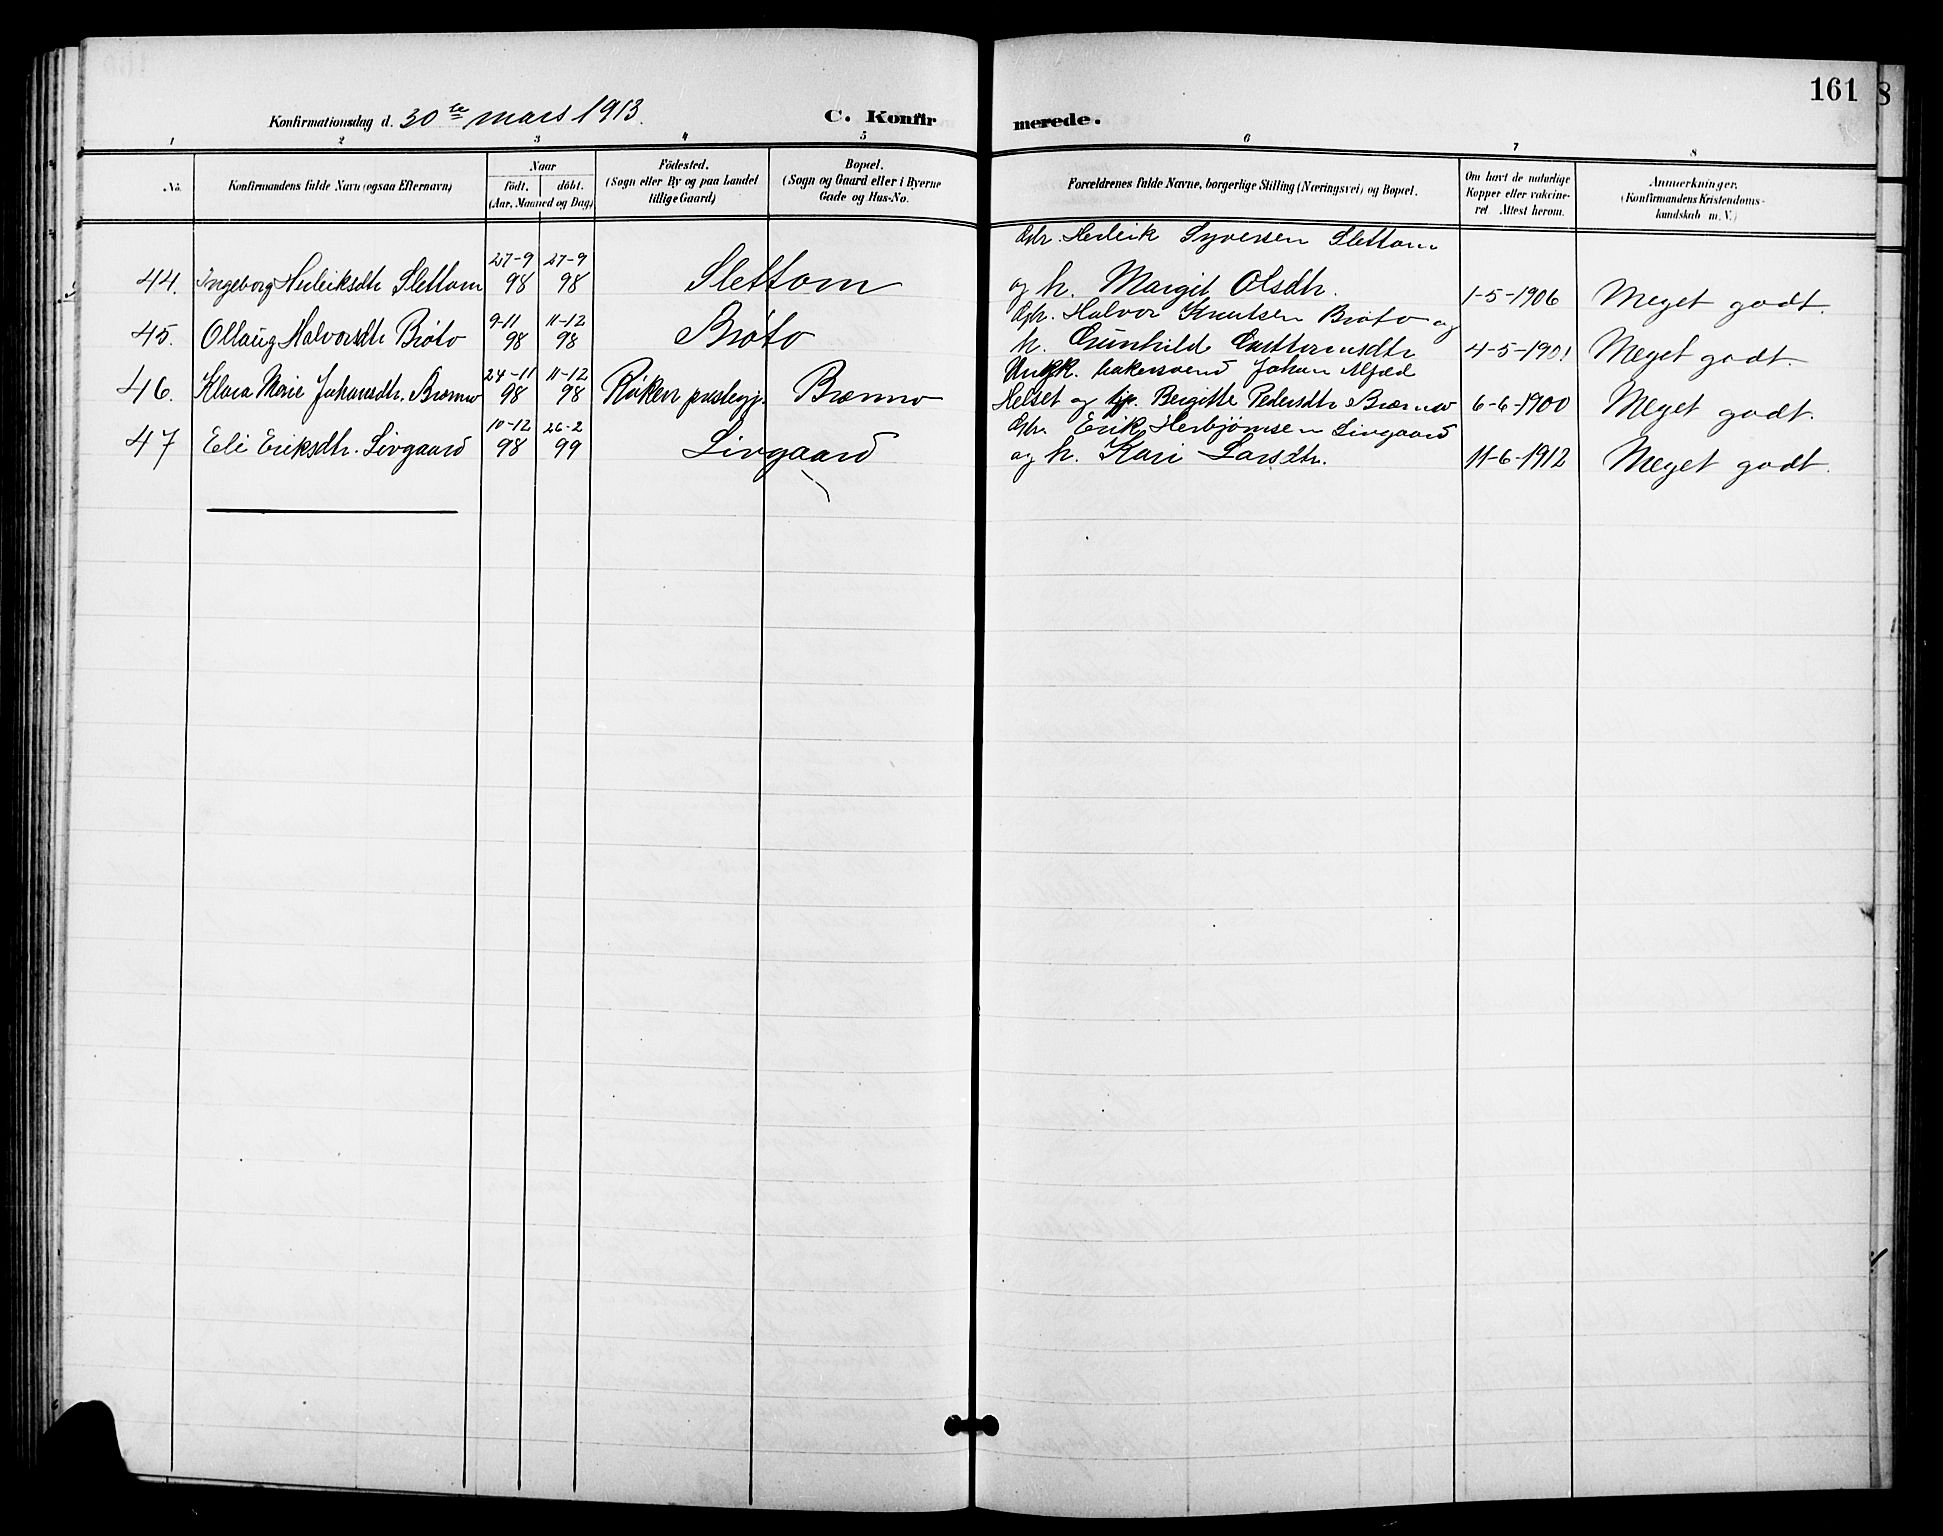 161
8
Konfirmationsdag d. 30te mars 1913.
C. Konfirmerede.
1 2 3 4 5 6 7 8
No.
Konfirmandens fulde Navn (ogsaa Efternavn)
Naar
födt. döbt.
(Aar, Maaned og Dag)
Födested.
(Sogn eller By og paa Landet
tillige Gaard)
Bopæl.
(Sogn og Gaard eller i Byerne
Gade og Hus-No.
Forældrenes fulde Navne, borgerlige Stilling (Næringsvei) og Bopæl.
Om havt de naturlige
Kopper eller vakcine-
ret Attest herom.
Anmærkninger.
(Konfirmandens Kristendoms-
kundskab m. V.)
27-9 27-9 Gbr. Herleik Syversen Slettom
44. Ingeborg Herleiksdtr Slettom 98 98 Slettom og h. Margit Olsdtr. 1-5-1906 Meget godt.
9-11 11-12 Gbr. Halvor Knutsen Bröto og
45. Ollaug Halvorsdtr Bröto 98 98 Bröto h. Gunhild Guttormsdtr 4-5-1901 Meget godt.
24-11 11-12 Ungk. bakersvend Johan Alfred
46. Klara Marie Johansdtr. Brænno 98 98 Röken prestegj. Brænno Helset og pp. Bergitte Pedersdtr Brænno 6-6-1900 Meget godt.
10-12 26-2 Gbr. Erik Herbjörnsen Livgaard
47 Eli Eriksdtr. Livgaard 98 99 Livgaard og h. Kari Larsdtr. 11-6-1912 Meget godt.